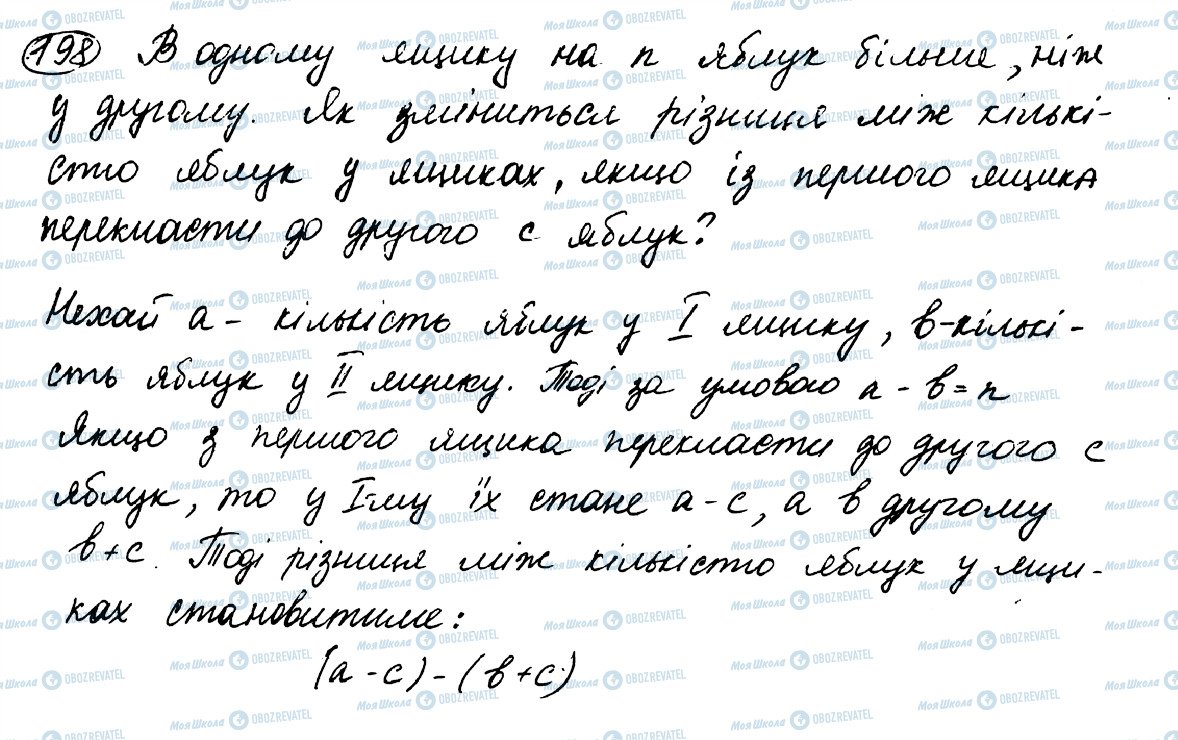 198 В одному ящику на n яблук більше, ніж
у другому. Як зміниться різниця між кількі-
стю яблук у ящиках, якщо із першого ящика
перекласти до другого c яблук?
Нехай a - кількість яблук у I ящику, b-кількі-
сть яблук у II ящику. Тоді за умовою a - b = n
Якщо з першого ящика перекласти до другого c
яблук, то у I-му їх стане a - c, а в другому
b + c. Тоді різниця між кількістю яблук у ящи-
ках становитиме:
(a - c) - (b + c)